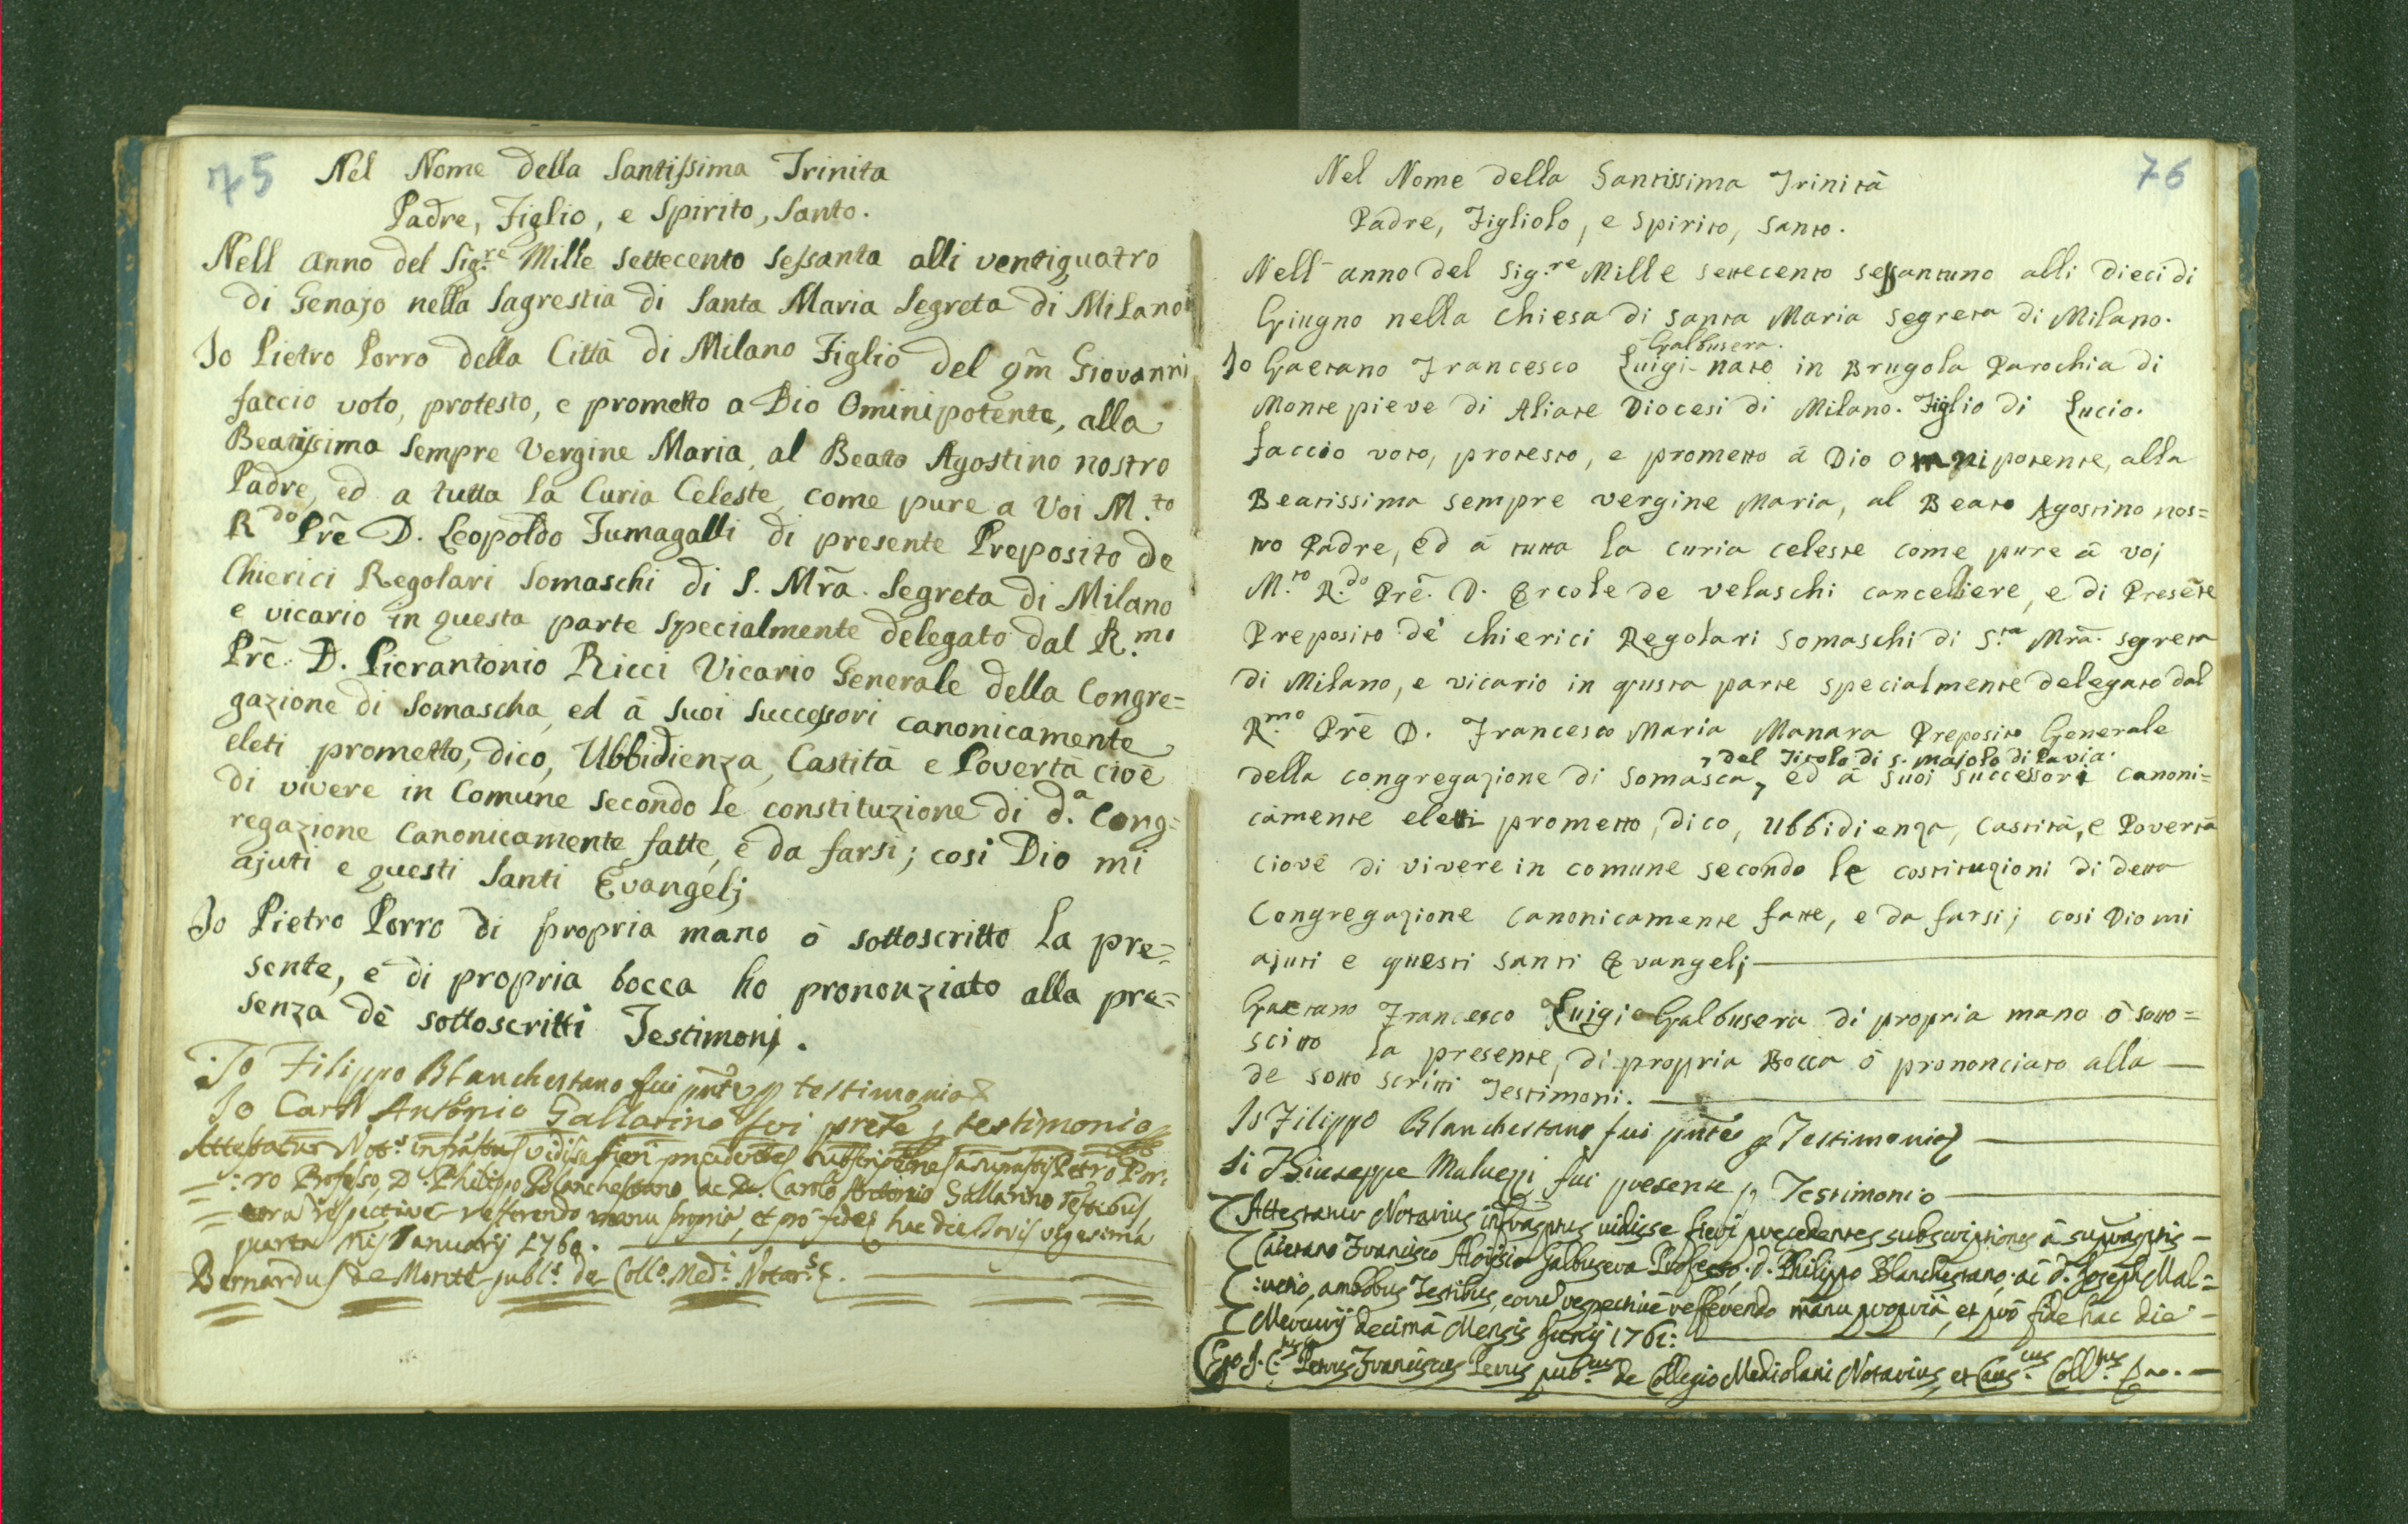 75
Nel Nome della Santissima Trinita
Padre, Figlio, e Spirito, Santo.
Nell anno del Sig.re Mille settecento sessanta alli ventiquatro
di Genajo nella Sagrestia di Santa Maria Segreta di Milano
Io Pietro Porro della Città di Milano Figlio del qm̃ Giovanni
faccio voto, protesto, e prometto a Dio Ominipotente, alla
Beatissima sempre Vergine Maria, al Beato Agostino nostro
Padre, ed a tutta la Curia Celeste, come pure a Voi M.to
R.do Prẽ D. Leopoldo Fumagalli di presente Preposito de
Chierici Regolari Somaschi di S. Mrã. Segreta di Milano
e vicario in questa parte specialmente delegato dal R.mo
Prẽ. D. Pierantonio Ricci Vicario Generale della Congre=
gazione di Somascha, ed à suoi successori canonicamente
eleti prometto, dico, Ubbidienza, Castità e Povertà cioè
di vivere in Comune secondo le constituzione di d.a Cong=
regazione Canonicamente fatte, e da farsi; così Dio mi
ajuti e questi Santi Evangelj
Io Pietro Porro di propria mano ò sottoscritto la pre=
sente, e di propria bocca ho pronouziato alla pre=
senza dè sottoscritti Testimonj.
Io Filippo Blanchestano fui pñte p testimonio
Io Carlo Antonio Gallarino fui prete p testimonio
Attestatur Not.s infrãptus vidisse fieri precedentes subscriptiones a supraptis Petro Por:
=:ro Professo, D. Philippo Blanchestano, ac D. Carolo Antonio Gallarino Testibus
= cora respective refferendo manu propria, et prò fide hac die Jovis vigesima
quarta Mis Januarij 1760.
Bernardus de Monte publ.s de Coll.o Med.i Notar.s
76
Nel Nome della Santissima Trinità
Padre, Figliolo, e Spirito, Santo.
Nell' anno del Sig.re Mille settecento sessantuno alli dieci di
Giugno nella chiesa di Santa Maria Segreta di Milano.
Galbusera.
Io Gaetano Francesco Luigi nato in Brugola Parochia di
Monte pieve di Aliate Diocesi di Milano. Figlio di Lucio.
faccio voto, protesto, e prometto à Dio Omnipotente, alla
Beatissima sempre vergine Maria, al Beato Agostino nos=
tro Padre, ed à tutta la curia celeste come pure à voj
M.to R.do Prẽ. D. Ercole de velaschi canceliere, e di Presẽte
Preposito de' chierici Regolari Somaschi di S.ta Mrã. segreta
di Milano, e vicario in qusta parte specialmente delegato dal
R.mo Prẽ D. Francesco Maria Manara Preposito Generale
, del Titolo di S. Majolo di Pavia.
della congregazione di Somasca, ed à suoi successori canoni=
camente eletti prometto, dico, ubbidienza, Castità, e Povertà
Ciové di vivere in comune secondo le costituzioni di detta
Congregazione canonicamente fatte, e da farsi; così Dio mi
ajuti e questi santi Evangelj
Gaetano Francesco Luigi Galbusera di propria mano ò sotto=
scitto la presente, di propria Bocca ò prononciato alla
de sotto scritti Testimoni.
Io Filippo Blanchestano fui pñte p Testimonio
Giuseppe Maluezzi fui presente p Testimonio
Attestatur Notarius infraptus vidisse fieri precedentes subscriptiones à supraptis
Caietano Francisco Aloysio Galbusera Professo, d. Philippo Blanchestano, ac d. Joseph Mal=
:uetio, ambobus Testibus, coram respectivè refferendo manu propria, et prò fide hac die
Mercurij decimà Mensis Junij 1761:
Ego J. C. Petrus Franciscus Perus pub.cus de Collegio Mediolani Notarius, et Caus.cus Coll.tus